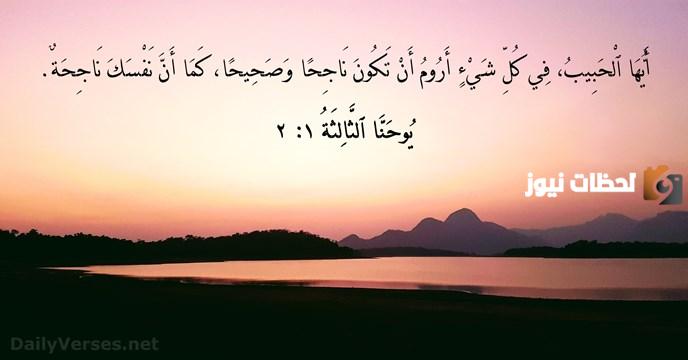 أَيُّهَا ٱلْحَبِيبُ، فِي كُلِّ شَيْءٍ أَرُومُ أَنْ تَكُونَ نَاجِحًا وَصَحِيحًا، كَمَا أَنَّ نَفْسَكَ نَاجِحَةٌ.
يُوحَنَّا ٱلثَّالِثَةُ ١: ٢
لحظات نيوز
DailyVerses.net